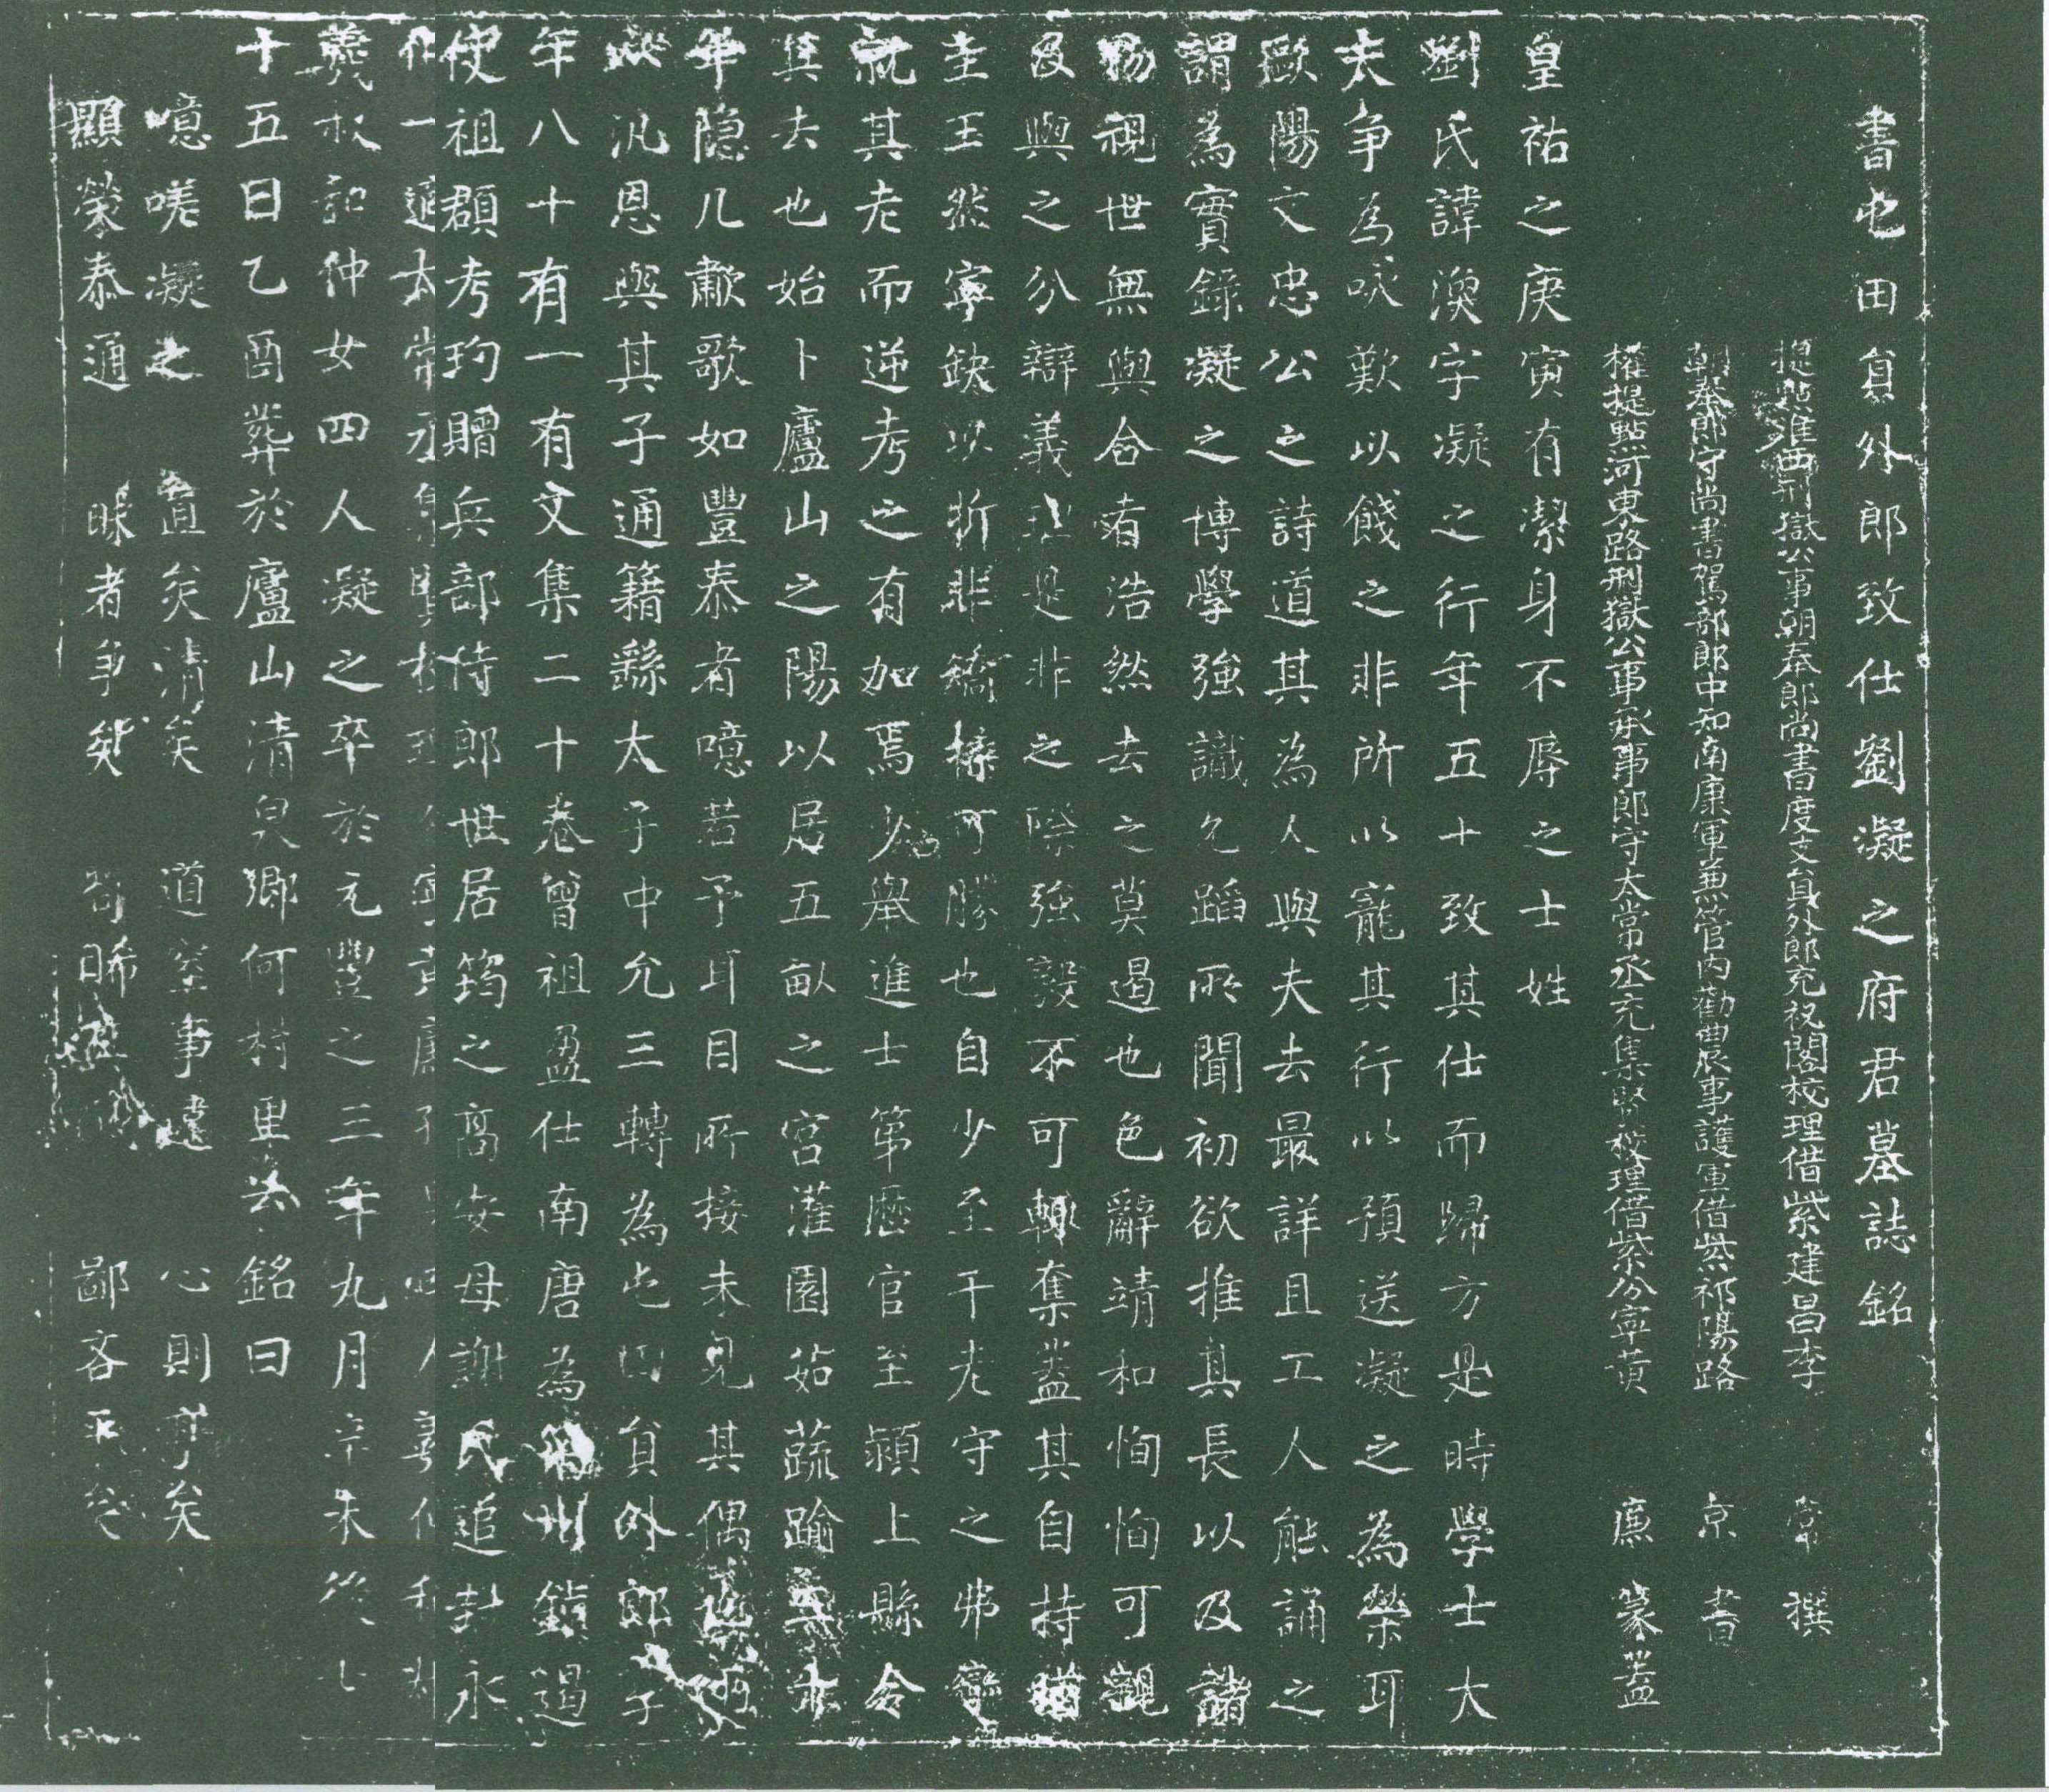 書屯田員外郎致仕劉凝之府君墓誌銘
提點淮西刑獄公事朝奉郎尚書度支員外郎充祕閣校理借紫建昌李常撰
朝奉郎守尚書駕部郎中知南康軍兼管內勸農事護軍借紫祁陽路京書
權提點河東路刑獄公事承事郎守太常丞充集賢校理借紫分寧黃廉篆蓋
皇祐之庚寅有潔身不辱之士姓
劉氏諱渙字凝之行年五十致其仕而歸方是時學士大
夫爭為咏歎以餞之非所以寵其行以預送凝之為榮耳
歐陽文忠公之詩道其為人與夫去最詳且工人能誦之
謂為實錄凝之博學強識凡蹈所聞初欲推其長以及諸
物視世無與合者浩然去之莫遏也色辭靖和恂恂可觀
及與之分辯義理是非之際強毅不可轉奪蓋其自持猶
圭玉然寧缺以折非矯揉可勝也自少至于老守之弗變
就其老而逆考之有加焉少舉進士第歷官至潁上縣令
其去也始卜廬山之陽以居五畝之宮灌園茹蔬踰三十
年隱几歗歌如豐泰者噫若予耳目所接未見其偶
汎恩與其子通籍繇太子中允三轉為屯田員外郎子
年八十有一有文集二十卷曾祖盈仕南唐為州鎮遏
使祖頵考玓贈兵部侍郎世居筠之高安母謝氏追封永
義叔和仲女四人凝之卒於元豐之三年九月辛未後七
十五日乙酉葬於廬山清泉鄉何村里云銘曰
噫嗟凝之 直矣清矣 道窒事違 心則亨矣
顯榮泰通 昧者爭矣 鄙吝